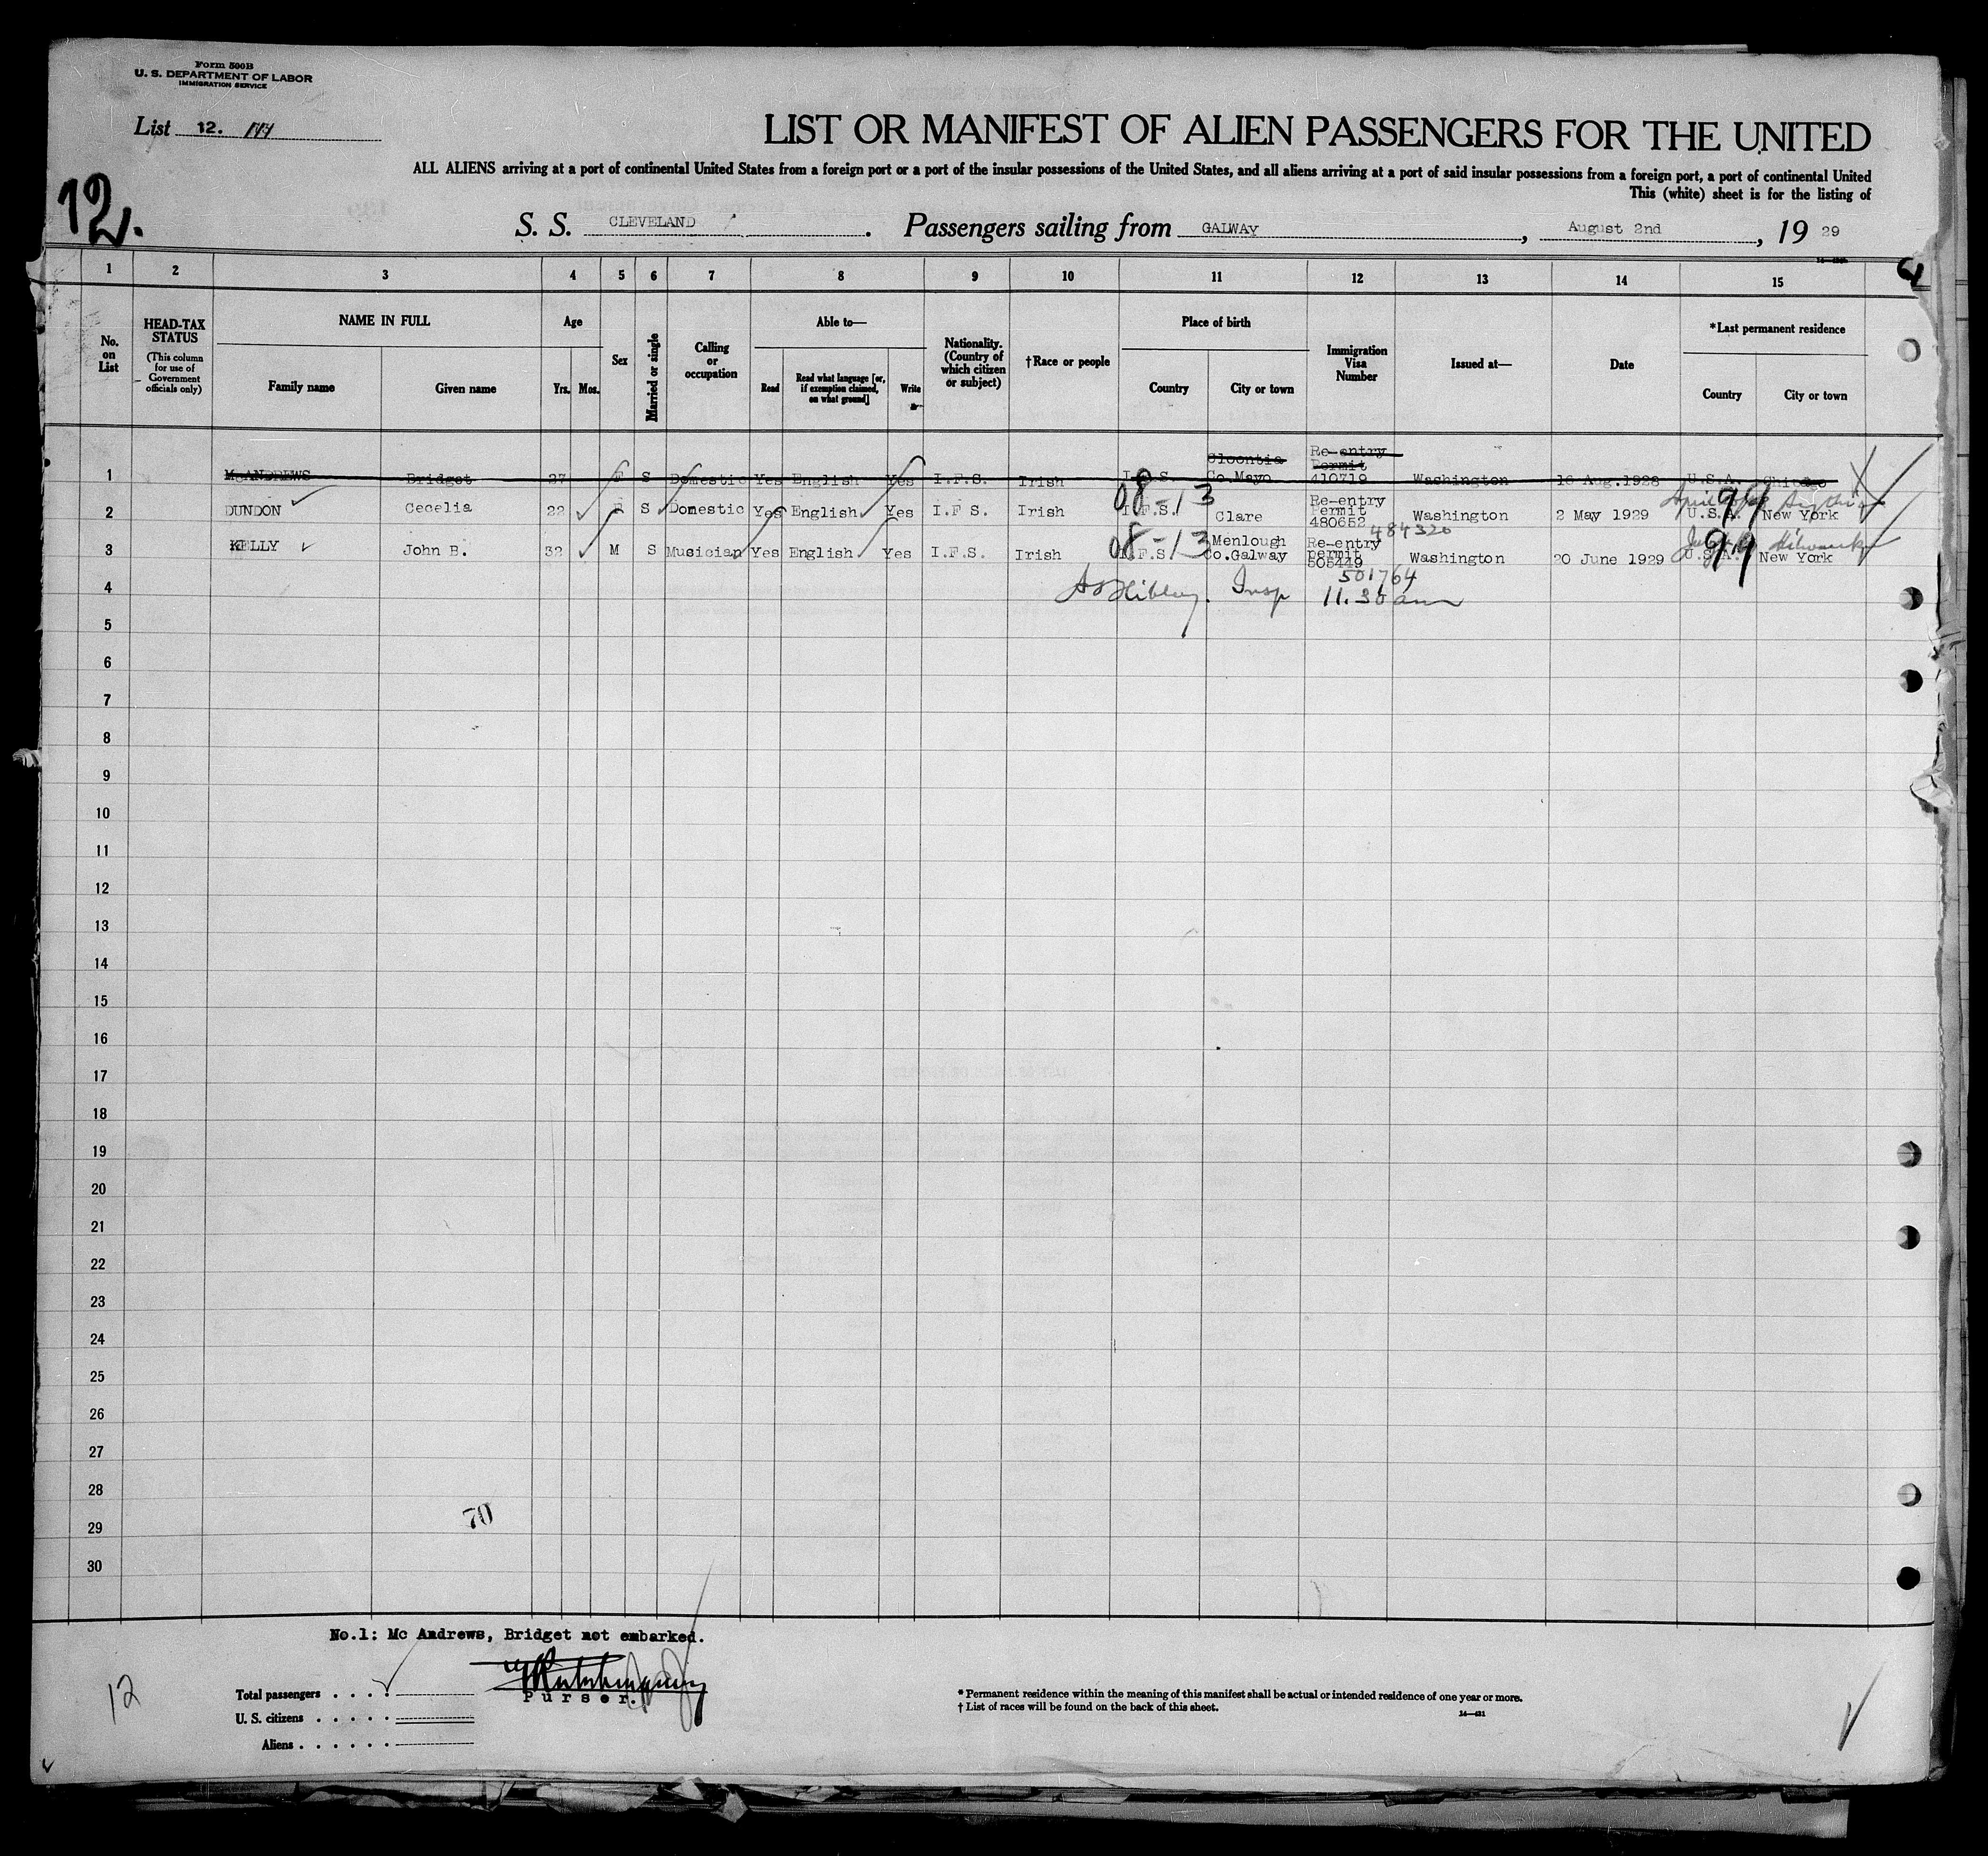 Form 500B
U. S. DEPARTMENT OF LABOR
IMMIGRATION SERVICE
List 12.
LIST OR MANIFEST OF ALIEN PASSENGERS FOR THE UNITED
ALL ALIENS arriving at a port of continental United States from a foreign port or a port of the insular possessions of the United States, and all aliens arriving at a port of said insular possessions from a foreign port, a port of continental United
This (white) sheet is for the listing of
12.
S. S. CLEVELAND . Passengers sailing from GALWAY , August 2nd , 19 29
1 2 3 4 5 6 7 8 9 10 11 12 13 14 15
No. on List
HEAD-TAX STATUS
(This column for use of Government officials only)
NAME IN FULL
Family name Given name
Age
Yrs. Mos.
Sex
Married or single
Calling or occupation
Able to—
Read Read what language [or, if exemption claimed, on what ground] Write
Nationality. (Country of which citizen or subject)
†Race or people
Place of birth
Country City or town
Immigration Visa Number
Issued at—
Date
*Last permanent residence
Country City or town
1 McANDREWS Bridget 27 F S Domestic Yes English Yes I.F.S. Irish I.F.S. Cloontia Co.Mayo Re-entry Permit 410719 Washington 16 Aug.1928 U.S.A. Chicago
2 DUNDON Cecelia 22 F S Domestic Yes English Yes I.F S. Irish I.F.S. Clare Re-entry Permit 480652 Washington 2 May 1929 U.S.A. New York
08-13 484320 99
3 KELLY John B. 32 M S Musician Yes English Yes I.F.S. Irish I.F.S. Menlough Co.Galway Re-entry permit 505449 Washington 20 June 1929 U.S.A. New York
08-13 501764 99
4 Insp 11.30 am
5
6
7
8
9
10
11
12
13
14
15
16
17
18
19
20
21
22
23
24
25
26
27
28
70
29
30
No.1: Mc Andrews, Bridget not embarked.
Purser.
12
Total passengers . . . .
U. S. citizens . . . . .
Aliens . . . . . .
* Permanent residence within the meaning of this manifest shall be actual or intended residence of one year or more.
† List of races will be found on the back of this sheet.
14—421